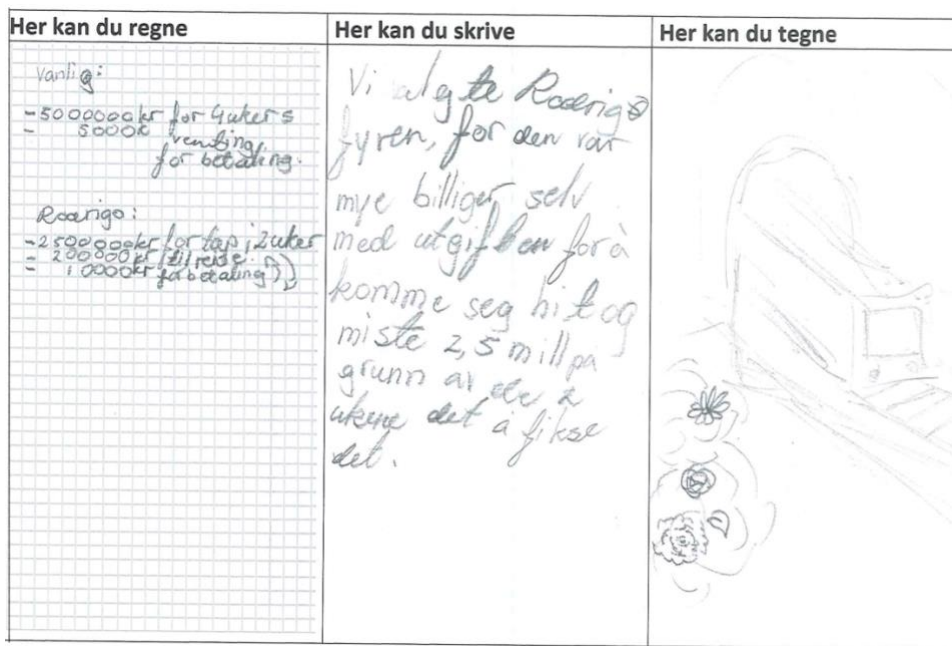 Her kan du regne
Vanlig:
-5000000kr for 4ukers
- 5000k venting
for betaling.
Rodrigo:
-2500000kr for tap i 2uker
- 200000kr til reise
- 10000kr for betaling
Her kan du skrive
Vi valgte Rodrigo
fyren, for den var
mye billiger selv
med utgiften for å
komme seg hit og
miste 2,5 mill på
grunn av de 2
ukene det å fikse
det.
Her kan du tegne